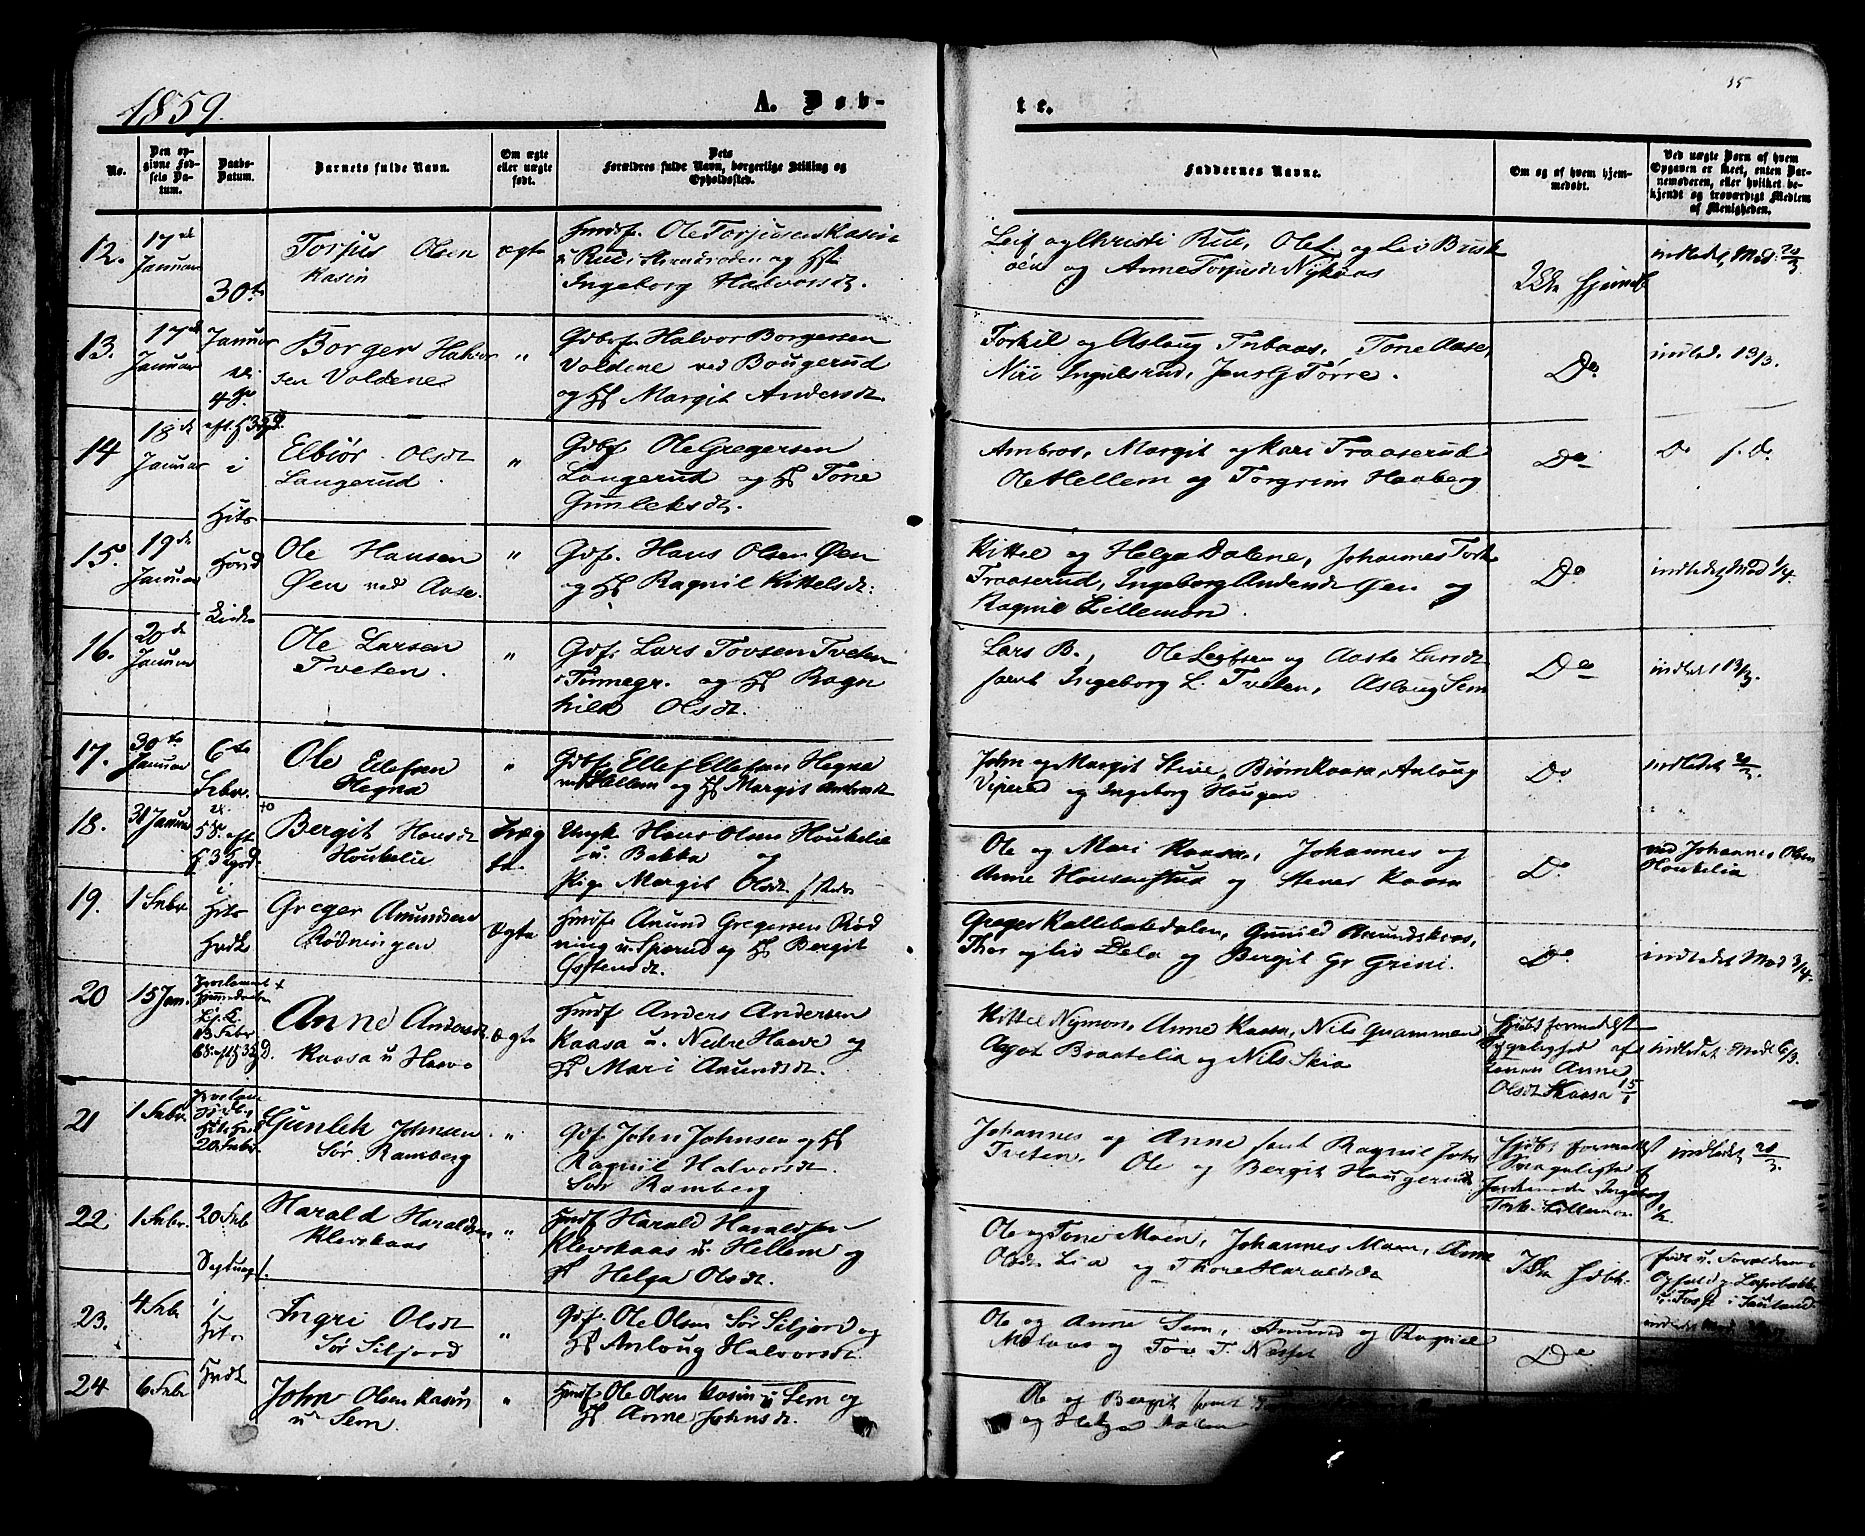 1859.
A. Døb-
te.
35
No.
Den op-
givne Fød-
sels Da-
tum.
Daabs-
Datum.
Barnets fulde Navn.
Om ægte
eller uægte
født.
Dets
Forældres fulde Navn, borgerlige Stilling og
Opholdssted.
Faddernes Navne.
Om og af hvem hjem-
medøbt.
Ved uægte Børn af hvem
Opgaven er skeet, enten Bar-
nemoderen, eller hvilket be-
kjendt og troværdigt Medlem
af Menigheden.
12.
17de
Januar
30te
Torjus Olsen
Kasin
ægte
Huusmf. Ole Torjussen Kasin
og Hst
Ingeborg Halvorsdt.
Leif og Christi Rue, Ole L. og Liv Brusk
øen og Anne Torjusdt Nykaas
indledet Mod. 20/3
13.
17de
Januar
Januar
Borger Halvor
sen Voldene
"
Gdbrf Halvor Borgersen
Voldene ved Bougerud
og Hst Margit Andersdt.
Torkil og Aslaug Tubaas, Tone Aase,
Niri Ingulsrud, Jens G Tørre.
Do
indled. 13/3.
14
18de
Januar
i
Elbiør Olsdt
Langerud
"
Gdbf Ole Gregersen
Langerud og Hst Tone
Gunleksdt.
Ambros, Margit og Kari Traaserud
Ole Hellem og Torgrim Haaberg
Do
Do f. Do
15.
19de
Januar
Hits
Lide
Ole Hansen
Øen ved Aase.
"
Gdf. Hans Olsen Øen
og Hst Ragnil Kittelsdt.
Kittel og Helga Dalene, Johannes Tork.
Traaserud, Ingeborg Øen og
Ragnil Lillemon.
Do
indledet Mod 1/4.
16.
20de
Januar
Ole Larsen
Tveten.
"
Gdf. Lars Tovsen Tveten
i Tinnegr. og Hst Ragn
hild Olsdt.
Lars B., Ole Leifsen og Aaste Lundt
samt Ingeborg L. Tveten, Aslaug Sem
Do
indledet 13/3.
17.
30te
Januar
6te
Febr.
Ole Ellefsen
Hegna
"
Gdbf Ellef Ellefsen Hegna
ved Hellem og Hst Margit Andersdt
John og Margit Skive, Biørn Kaasa, Anloug
Viperud og Ingeborg Haugen
Do
indledet 20/3.
18.
31 Januar
Bergit Hansdt
Houkelie
Uæg
te
Ungk Hans Olsen Houkelie
u. Bakka og
Pige Margit Olsdt
Ole og Mari Kaasa, Johannes og
Anne Hansenstud og Stener Kaasa
Do
ved Johannes Olsen
Houkelia
19.
1 Febr.
Hits
Greger Amundsen
Rødningen
Ægte
Husmf. Amund Gregersen Rød
ning u. Sperud og Hst Bergit
Østensdt.
Greger Kallebækdalen, Gunild Amundskaas,
Thor og Liv Dela og Bergit Gr Grini.
Do
indledet Mod 3/4.
20
15 Jan.
13 Febr
Anne Andersdt
Kaasa u Haave
ægte
Husmf Anders Andersen
Kaasa u. Nedre Haave og
Hst Mari Amundsdt.
Kittel Nymon, Anne Kaasa, Nils Grammen
Aagot Braatelia og Nils Skia
Hjdbt formedelst
Svagelighed af
Konen Anne
Olsdt Kaasa 15/1
indledet Mod. 6/3.
21
1 Febr.
20 Febr.
Gunlek Johnsen
Sør Ramberg
"
Gdf John Johnsen og Hst
Ragnil Halvorsdt.
Sør Ramberg
Johannes og Anne samt Ragnil Johs
Tveten, Ole og Bergit Haugerud
Hjdbt formedelst
Svagelighed af
Jordemoder Ingeborg
Tork. Lillemon 1/2.
indledet 20/3.
22
1 Febr.
20 Feb
Harald Haraldsen
Klevskaas
"
Husmf Harald Haraldsen
Klevskaas u. Hellem og
Hst Helga Olsdt.
Ole og Tone Moen, Johannes Moen, Anne
Olsdt Lia og Thore Haraldsdt
Ikke Hdbt.
født u. Forældrenes
Ophold
i Sauland
23.
4 Febr
i
Hits
Ingri Olsdt
Sør Siljord
"
Gdf. Ole Olsen Sør Siljord og
Hst Anloug Halvorsdt.
Ole og Anne Sem, Amund og Ragnil
Molaas og Tor T. Næsset
Do
24
6 Febr
Hvdt
John Olsen Kasin
u Sem.
"
Husmf Ole Olsen Kasin u Sem og
Hst Anne Johnsdt.
Ole og Bergit samt
og Helga